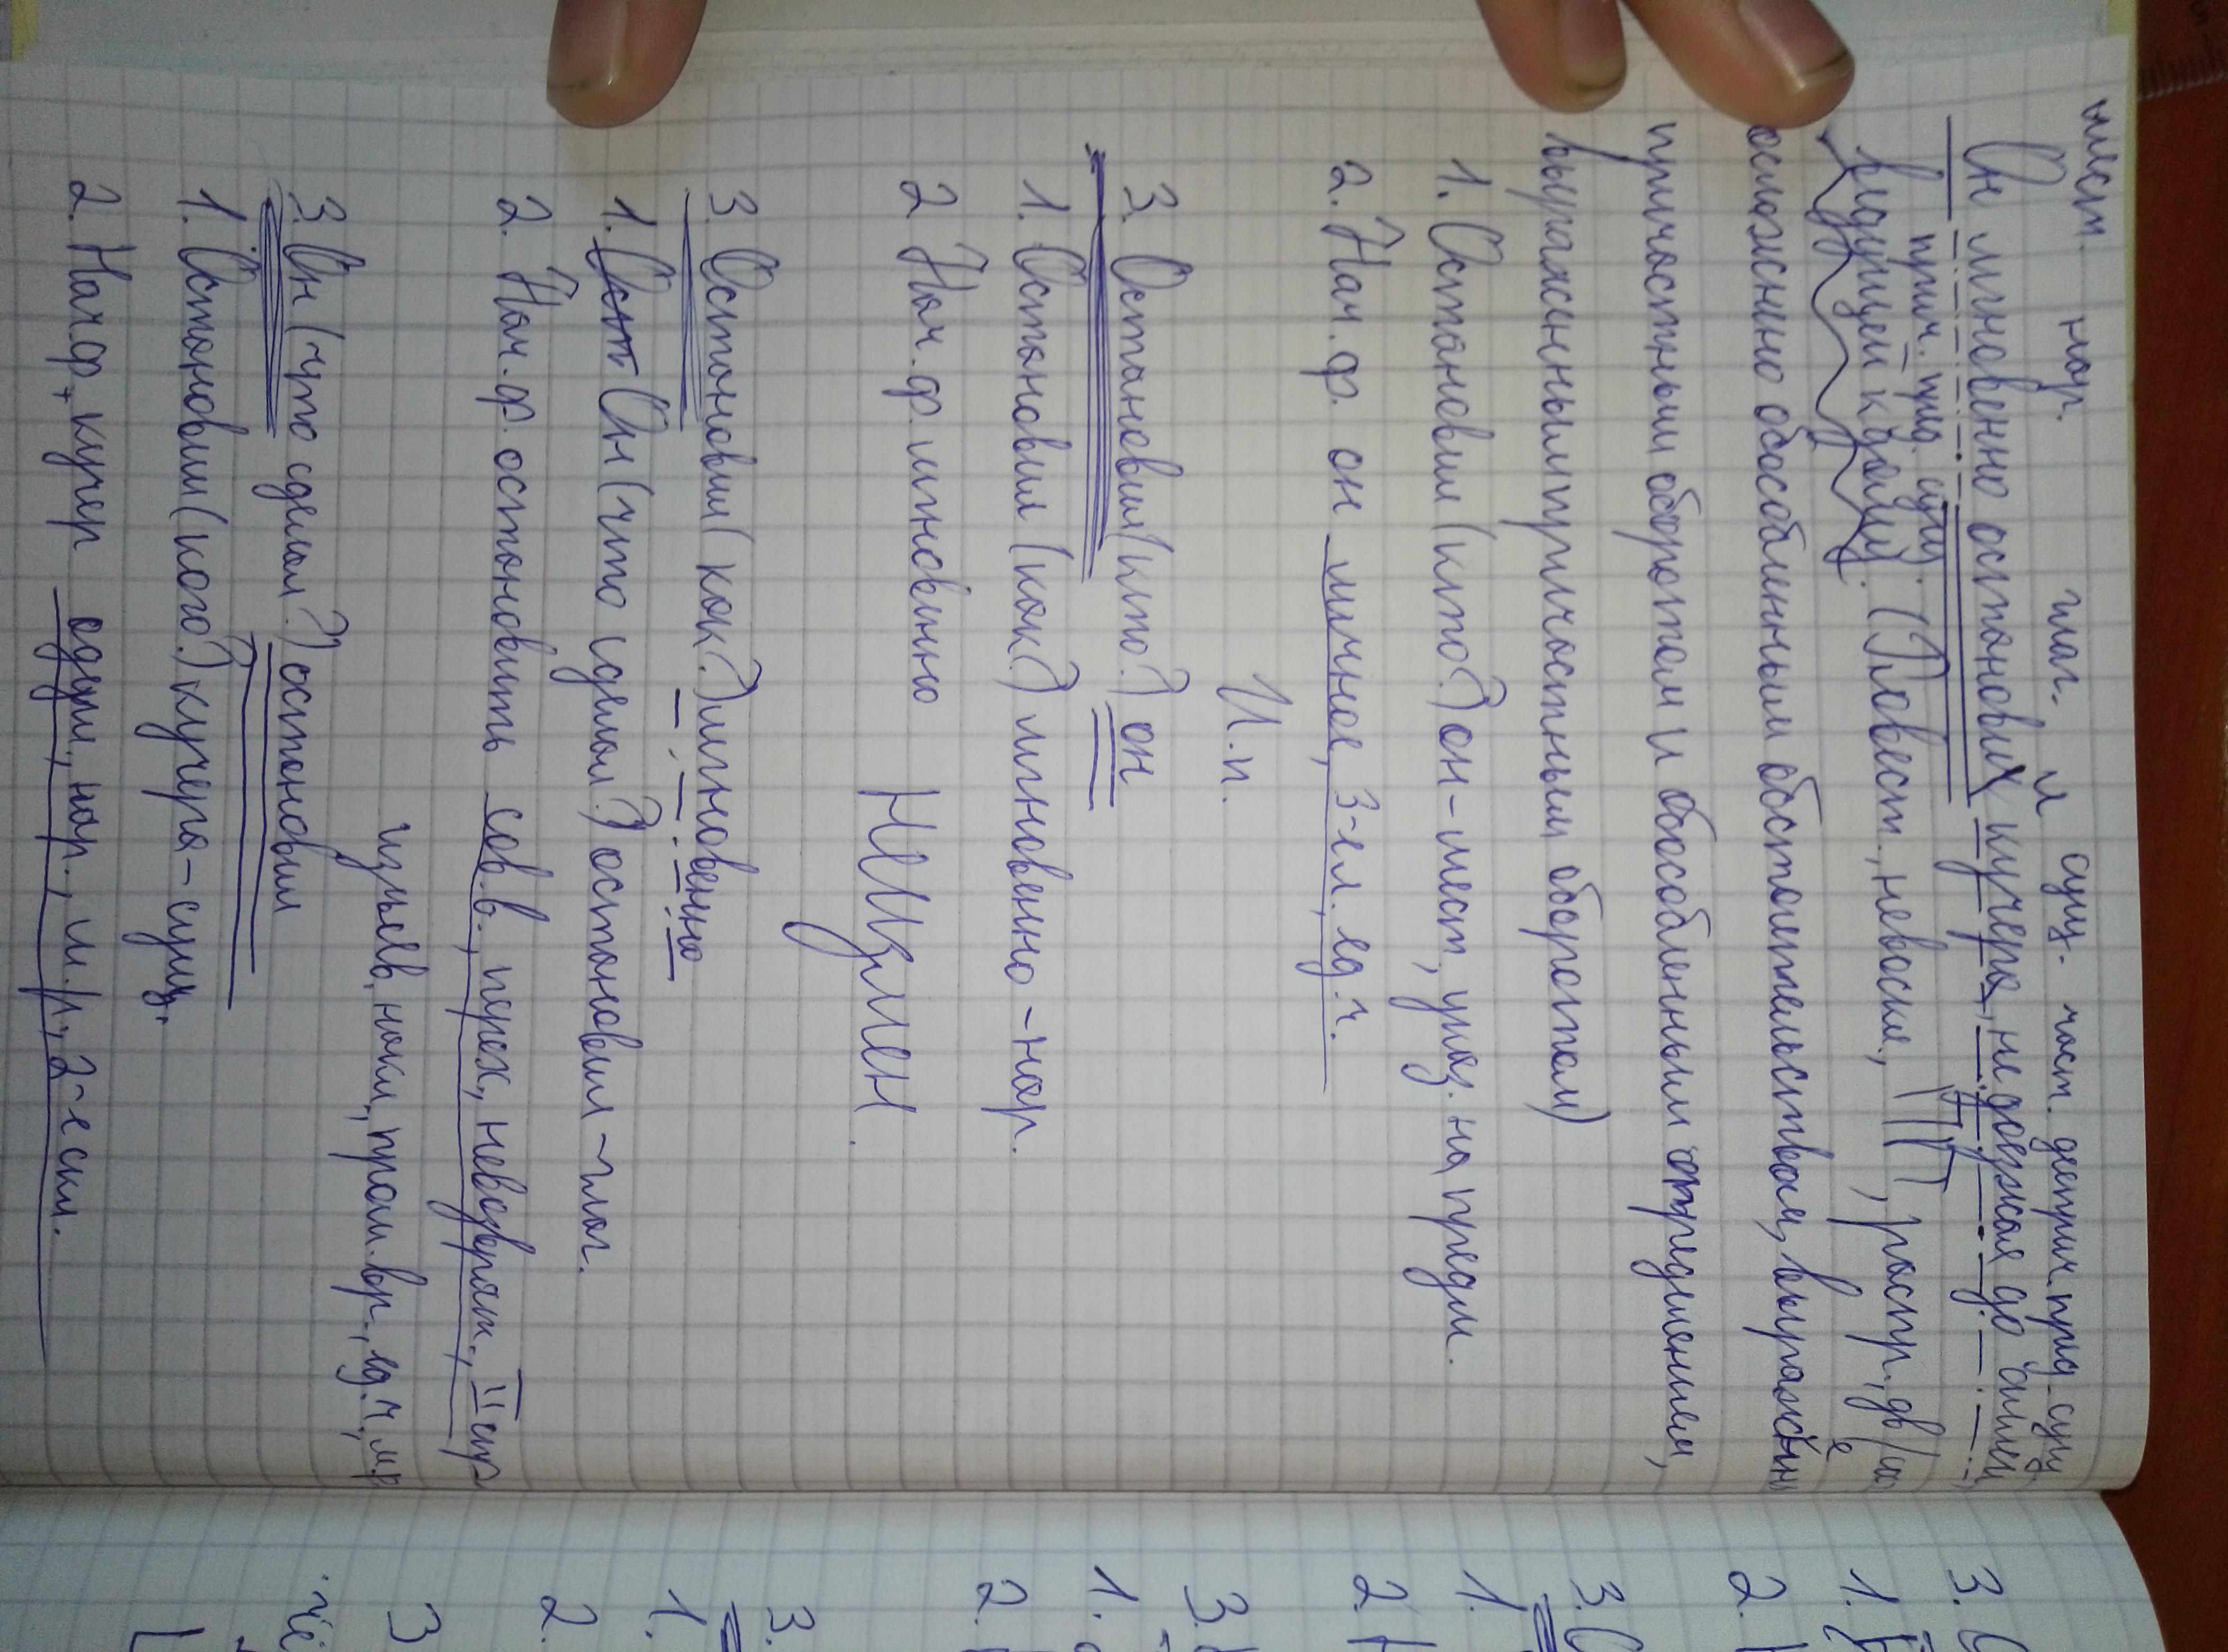 мест. нар. глаг. сущ. част. дееприч. пред. сущ.
Он мгновенно остановил кучера, не доезжая до аллеи,
прич. пред. сущ.
ведущей к дому. (Повест., невоскл., распр., дв
осложнено обособленным обстоятельством, выражен
причастным оборотом и обособленным определением,
выраженным причастным оборотом)
1. Остановил (кто?) он – мест., указ. на предм.
2. Нач. ф. он личное, 3-ел, ед. ч.
И.п.
3. Остановил (кто?) он
1. Остановил (как?) мгновенно – нар.
2 Нач. ф. мгновенно
НЕИзмен.
3. Остановил (как?) мгновенно
1. Он (что сделал?) остановил – глаг.
2. Нач. ф. остановить сов. в., перех., невозвратн., II спр
изъяв. накл., прош. вр., ед. ч., м.р
3. Он (что сделал?) остановил
1. Остановил (кого?) кучера – сущ.
2. Нач. ф. кучер одуш., нар., м. р., 2-е скл.
3.
1.
2.
3.
1.
2.
3.
1.
2.
3.
1.
2.
3